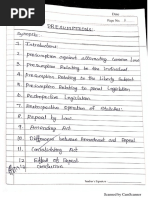 Date
Page No. 1
PRESUMPTIONS
Synopsis:
1. Introduction:
2. Presumption against alternating Common Law
3. Presumption Relating to the Individual
4. Presumption Relating to the Liberty Subject
5. Presumption Relating to penal Legislation
6. Presumption
7. Retrospective Operation of Statutes:
8. Repeal by Law.
9. Amending Act
10. Difference between Amendment and Repeal
11. Consolidating Act
12. Effect of Repeal
Conclusion
Scanned by CamScanner